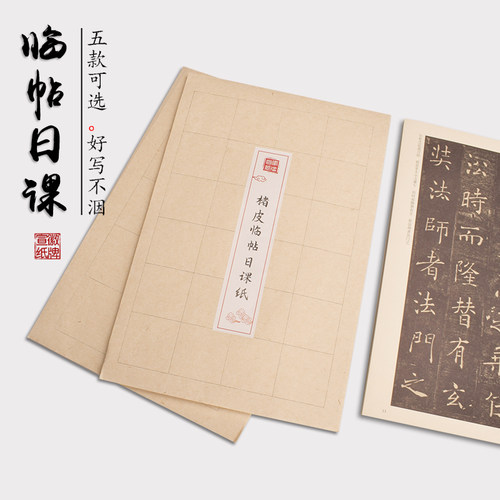 临帖日课
五款可选
好写不洇
徽牌
宣纸
楮皮临帖日课纸
沿時而隆替有玄
奘法師者法門之